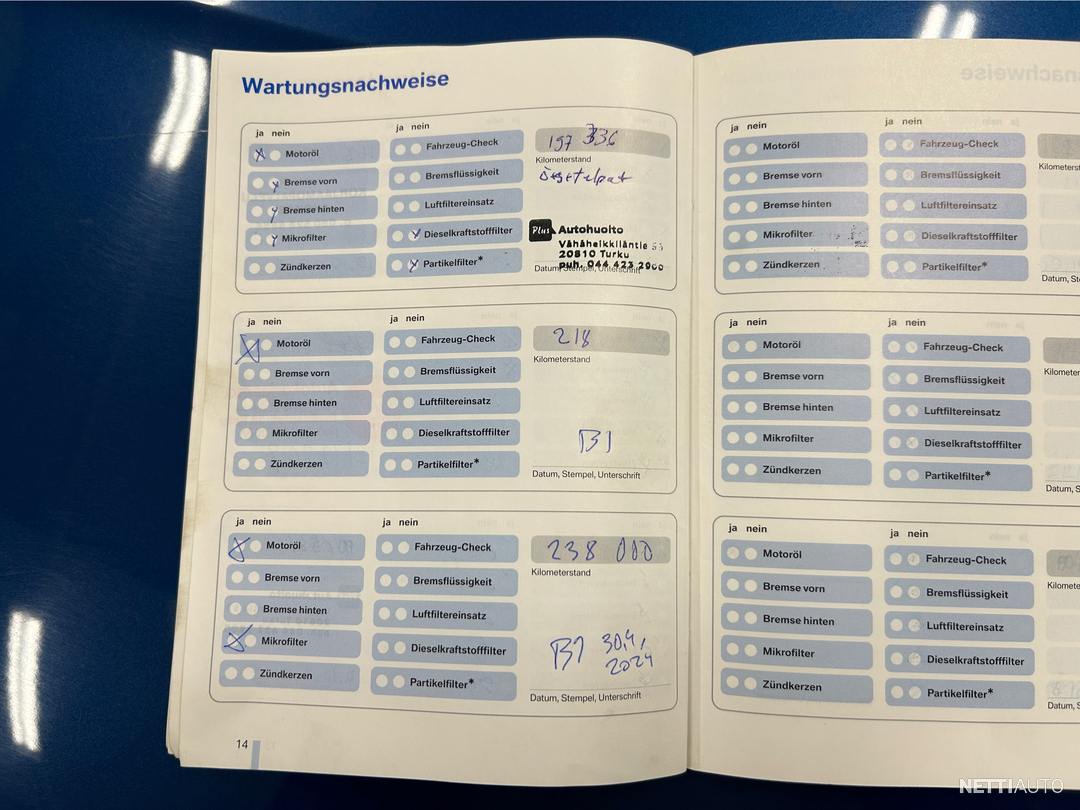 Wartungsnachweise
ja nein
Motoröl
Bremse vorn
Bremse hinten
Mikrofilter
Zündkerzen
ja nein
Fahrzeug-Check
Bremsflüssigkeit
Luftfiltereinsatz
Dieselkraftstofffilter
Partikelfilter*
197 336
Kilometerstand
Plus Autohuolto
Vähäheikkiläntie
20810 Turku
puh. 044 423 2900
Datum, Stempel, Unterschrift
ja nein
Motoröl
Bremse vorn
Bremse hinten
Mikrofilter
Zündkerzen
ja nein
Fahrzeug-Check
Bremsflüssigkeit
Luftfiltereinsatz
Dieselkraftstofffilter
Partikelfilter*
218
Kilometerstand
B1
Datum, Stempel, Unterschrift
ja nein
Motoröl
Bremse vorn
Bremse hinten
Mikrofilter
Zündkerzen
ja nein
Fahrzeug-Check
Bremsflüssigkeit
Luftfiltereinsatz
Dieselkraftstofffilter
Partikelfilter*
238 000
Kilometerstand
B1 30.4.
2024
Datum, Stempel, Unterschrift
14
ja nein
Motoröl
Bremse vorn
Bremse hinten
Mikrofilter
Zündkerzen
ja nein
Fahrzeug-Check
Bremsflüssigkeit
Luftfiltereinsatz
Dieselkraftstofffilter
Partikelfilter*
Kilometers
Datum, St
ja nein
Motoröl
Bremse vorn
Bremse hinten
Mikrofilter
Zündkerzen
ja nein
Fahrzeug-Check
Bremsflüssigkeit
Luftfiltereinsatz
Dieselkraftstofffilter
Partikelfilter*
Kilometer
Datum, S
ja nein
Motoröl
Bremse vorn
Bremse hinten
Mikrofilter
Zündkerzen
ja nein
Fahrzeug-Check
Bremsflüssigkeit
Luftfiltereinsatz
Dieselkraftstofffilter
Partikelfilter*
Kilomete
Datum, S
NETTIAUTO